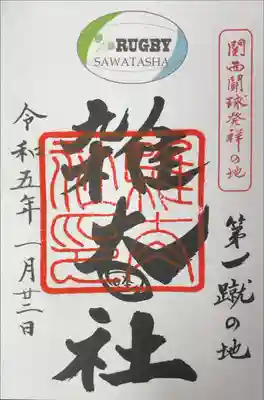 RUGBY
SAWATASHA
関西闘球発祥の地
第一蹴の地
雑太社
令和五年一月廿二日